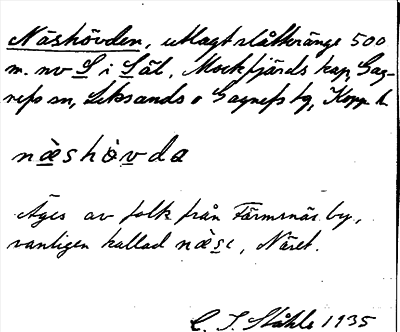 Näshövden, utlagt slåttkränge 500
m. nv S i Säl, Mockfjärds kap, Gag-
nefs sn, Leksands o Gagnefs tg, Kopp. l.
næshövda
Äges av folk från Färmsnäs by,
vanligen kallad næse, Näset.
C. I. Ståhle 1935